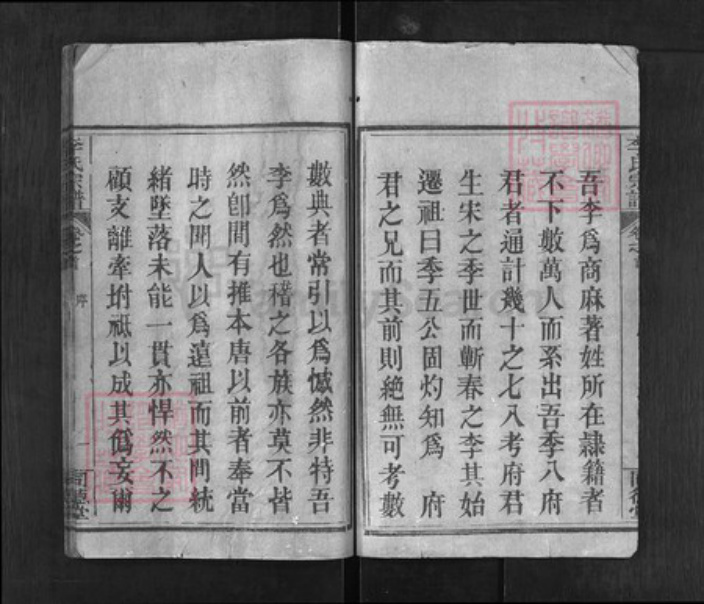 吾李爲商麻著姓所在隷籍者
不下數萬人而系出吾季八府
君者通計幾十之七八考府君
生宋之季世而蘄春之李其始
遷祖曰季五公固灼知爲 府
君之兄而其前則絶無可考數
數典者常引以爲憾然非特吾
李爲然也稽之各族亦莫不皆
然卽間有推本唐以前者奉當
時之聞人以爲遠祖而其間統
緒墜落未能一貫亦悍然不之
顧支離牽坿祗以成其僞妄爾
李氏宗譜 卷之首 序 一
李氏宗譜 卷之首
FamilySearch